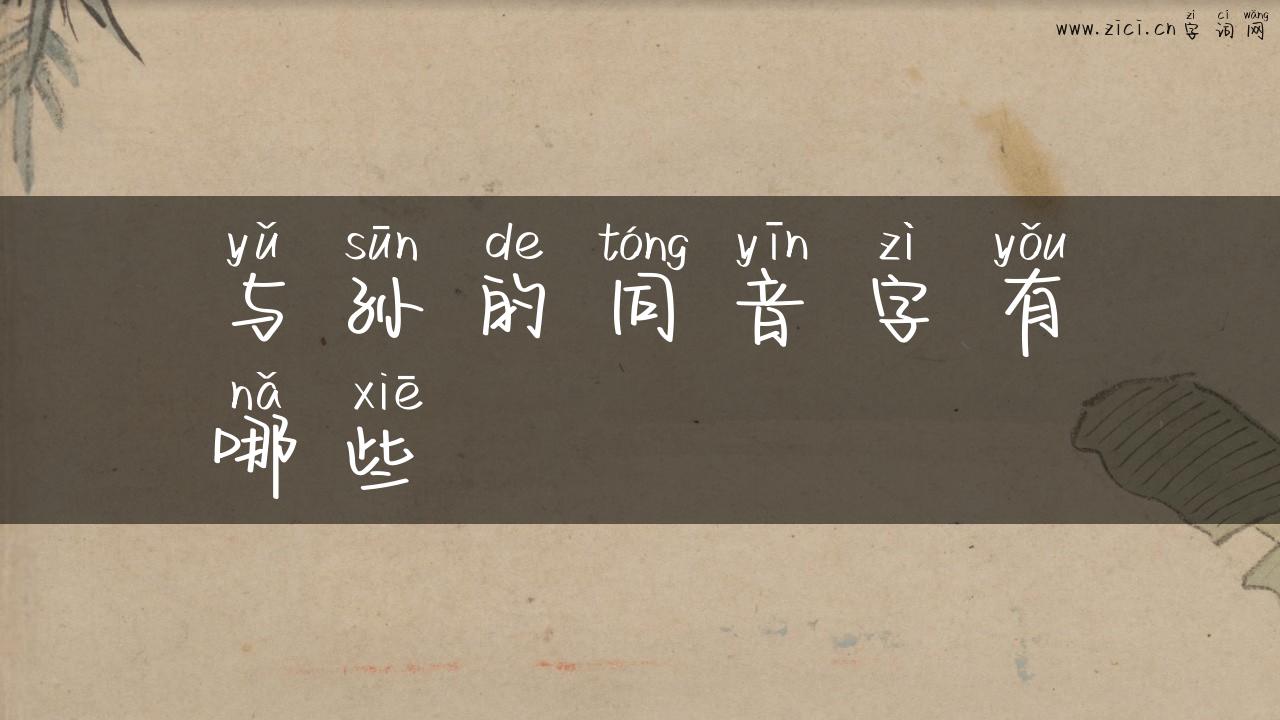 zì cí wǎng
www.zici.cn 字词网
yǔ sūn de tóng yīn zì yǒu
与孙的同音字有
nǎ xiē
哪些